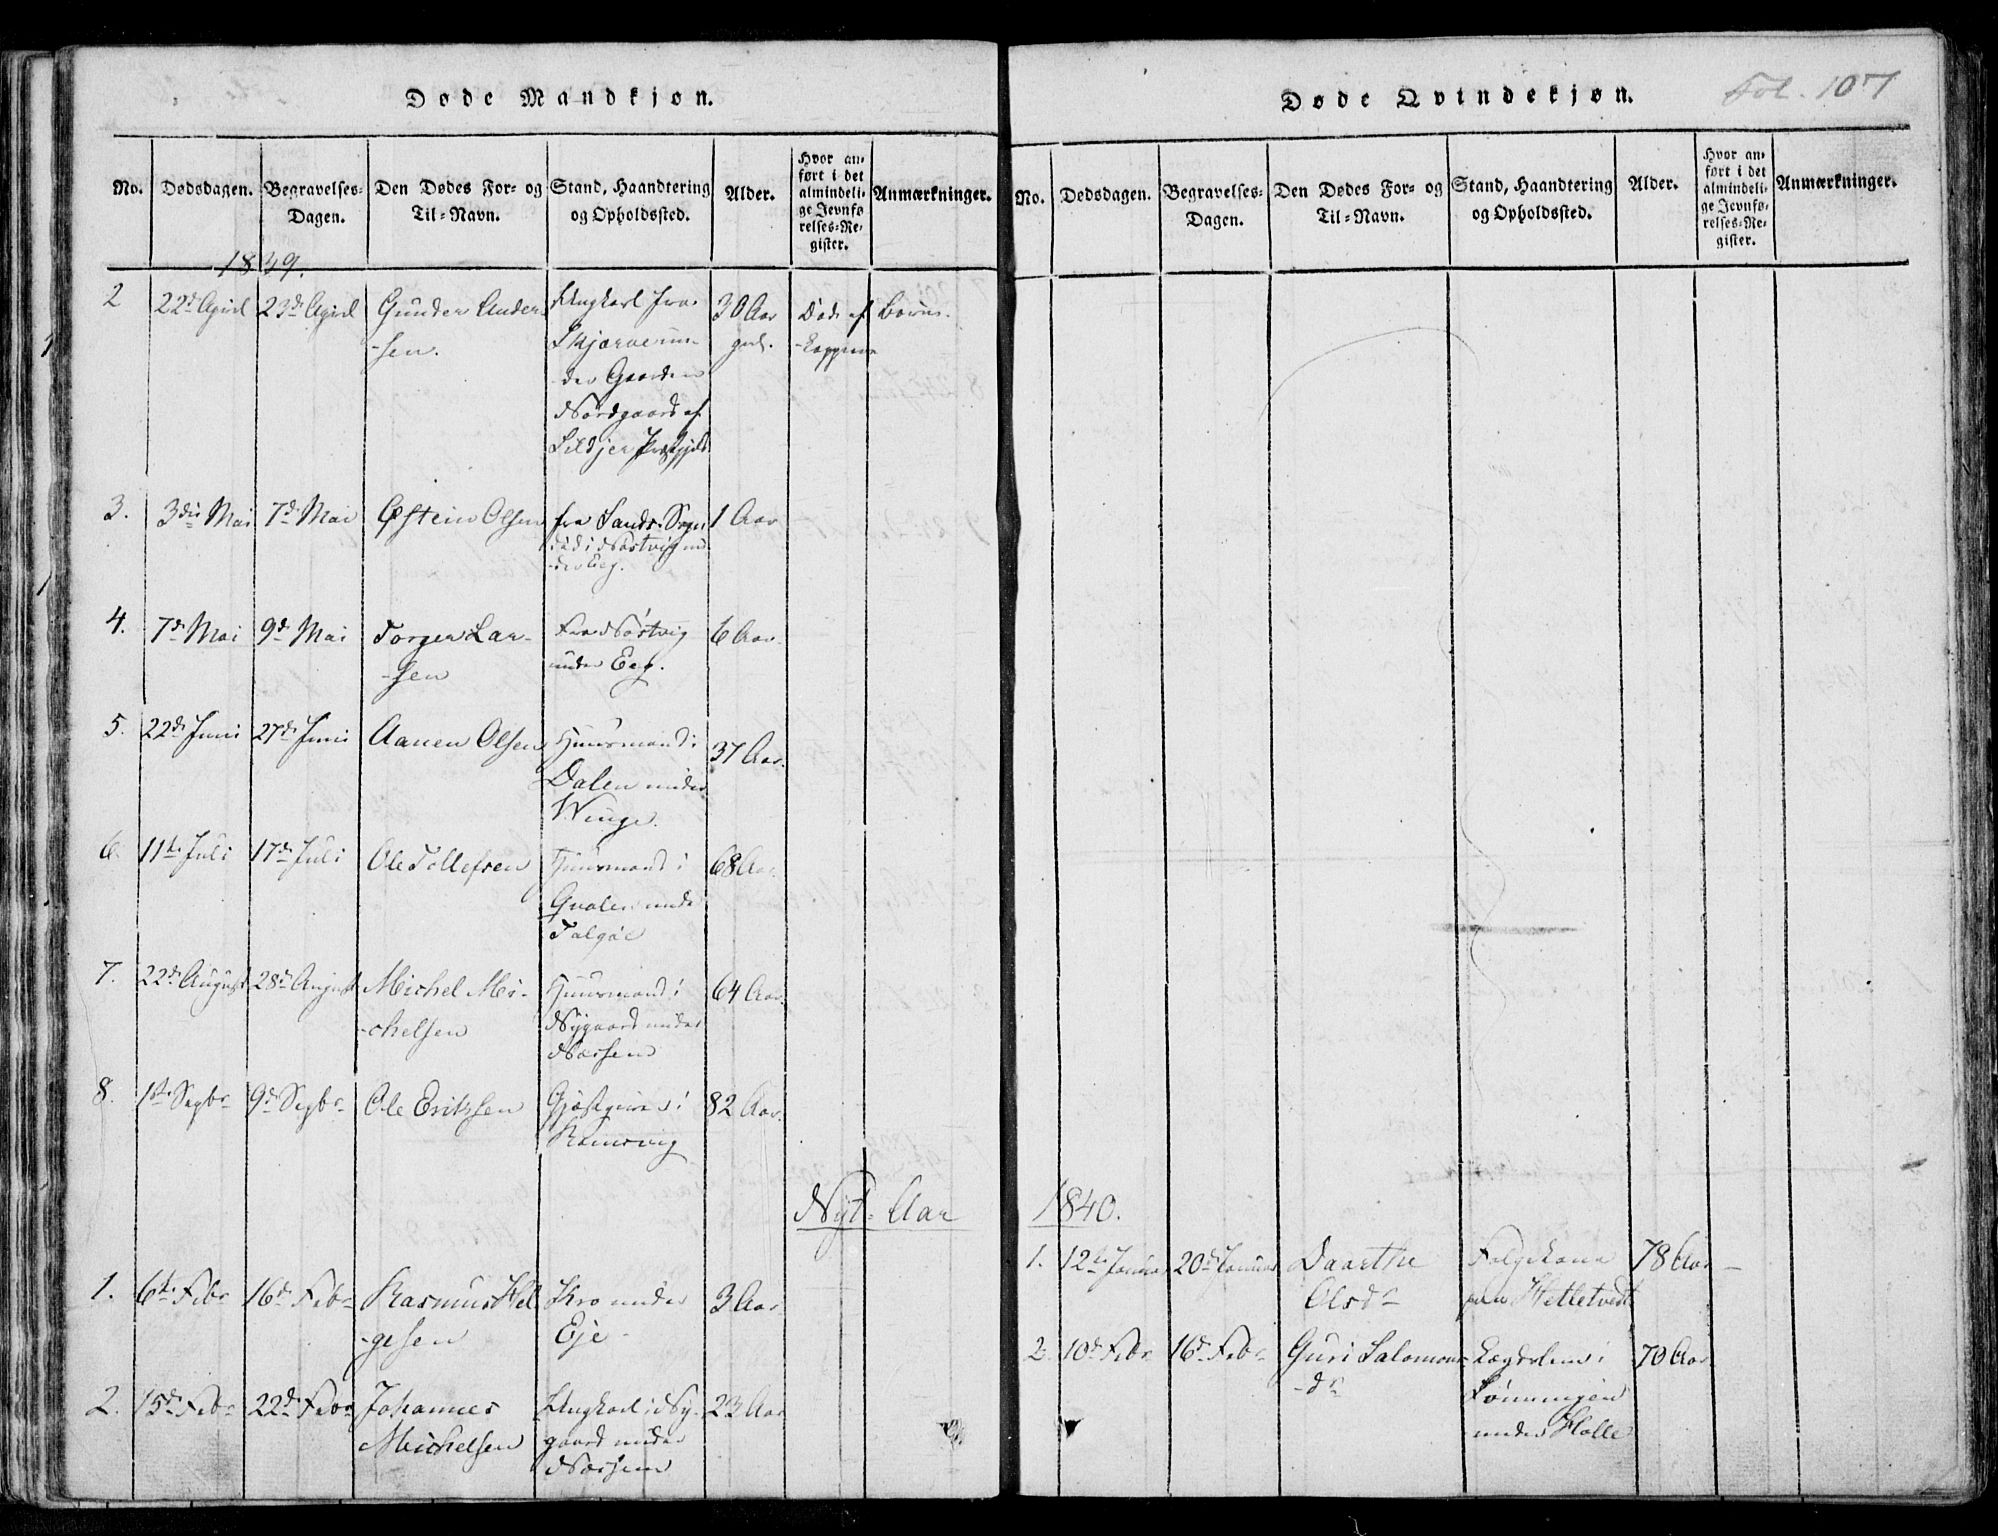 Døde Mandkjøn.
No.
Dødsdagen.
Begravelses-
Dagen.
Den Dødes For- og
Til-Navn.
Stand, Haandtering
og Opholdssted.
Alder.
Hvor an-
ført i det
almindeli-
ge Jevnfø
relses-Re-
gister.
Anmærkninger.
1839.
2
22de April
23de April
Gunder Ander-
-sen.
Ungkarl fra
Skjærve un-
-der Gaarden
Nordgaard af
Sildjer
30 Aar
gml.
Død af Børne-
-kopper
3.
3die Mai
7de Mai
Østein Olsen
fra Sands Sogn
død i Nøstvig un-
-der Eeg.
1 Aar
4.
7de Mai
9de Mai
Torger Lar-
-sen
Fra Nøstvig
under Eeg.
6 Aar
5.
22de Juni
27de Juni
Aanen Olsen
Huusmand i
Dalen under
Winge.
37 Aar.
6.
11te Juli
17de Juli
Ole Tollefsen
Huusmand i
Qvalen under
Talgøe
68 Aar.
7.
22de August
28de August
Michel Mi-
-chelsen
Huusmand i
Nygaard under
Næssene
64 Aar.
8.
1ste Sepbr
9de Sepbr
Ole Eriksen
Gjæstgiver i
Ramsvig
82 Aar.
Nyt-Aar
1.
6te Febr
16de Febr
Rasmus Hel-
-gesen
Kro under
Eje
3 Aar
2.
15de Febr
22de Febr
Johannes
Michelsen
Ungkarl i Ny-
gaard under
Næssene
23 Aar
Døde Qvindekjøn.
Fol. 107
No.
Dødsdagen.
Begravelses-
Dagen.
Den Dødes For- og
Til-Navn.
Stand, Haandtering
og Opholdssted.
Alder.
Hvor an-
ført i det
almindeli-
ge Jevnfø-
relses-Re-
gister.
Anmærkninger.
1840.
1.
12te Januar
20de Januar
Daarthe
Olsdr
Folgekone
paa Helletvedt
78 Aar
2.
10de Febr
16de Febr
Guri Salomons-
-dr
Lægdslem i
Lønningen
under Halle
70 Aar